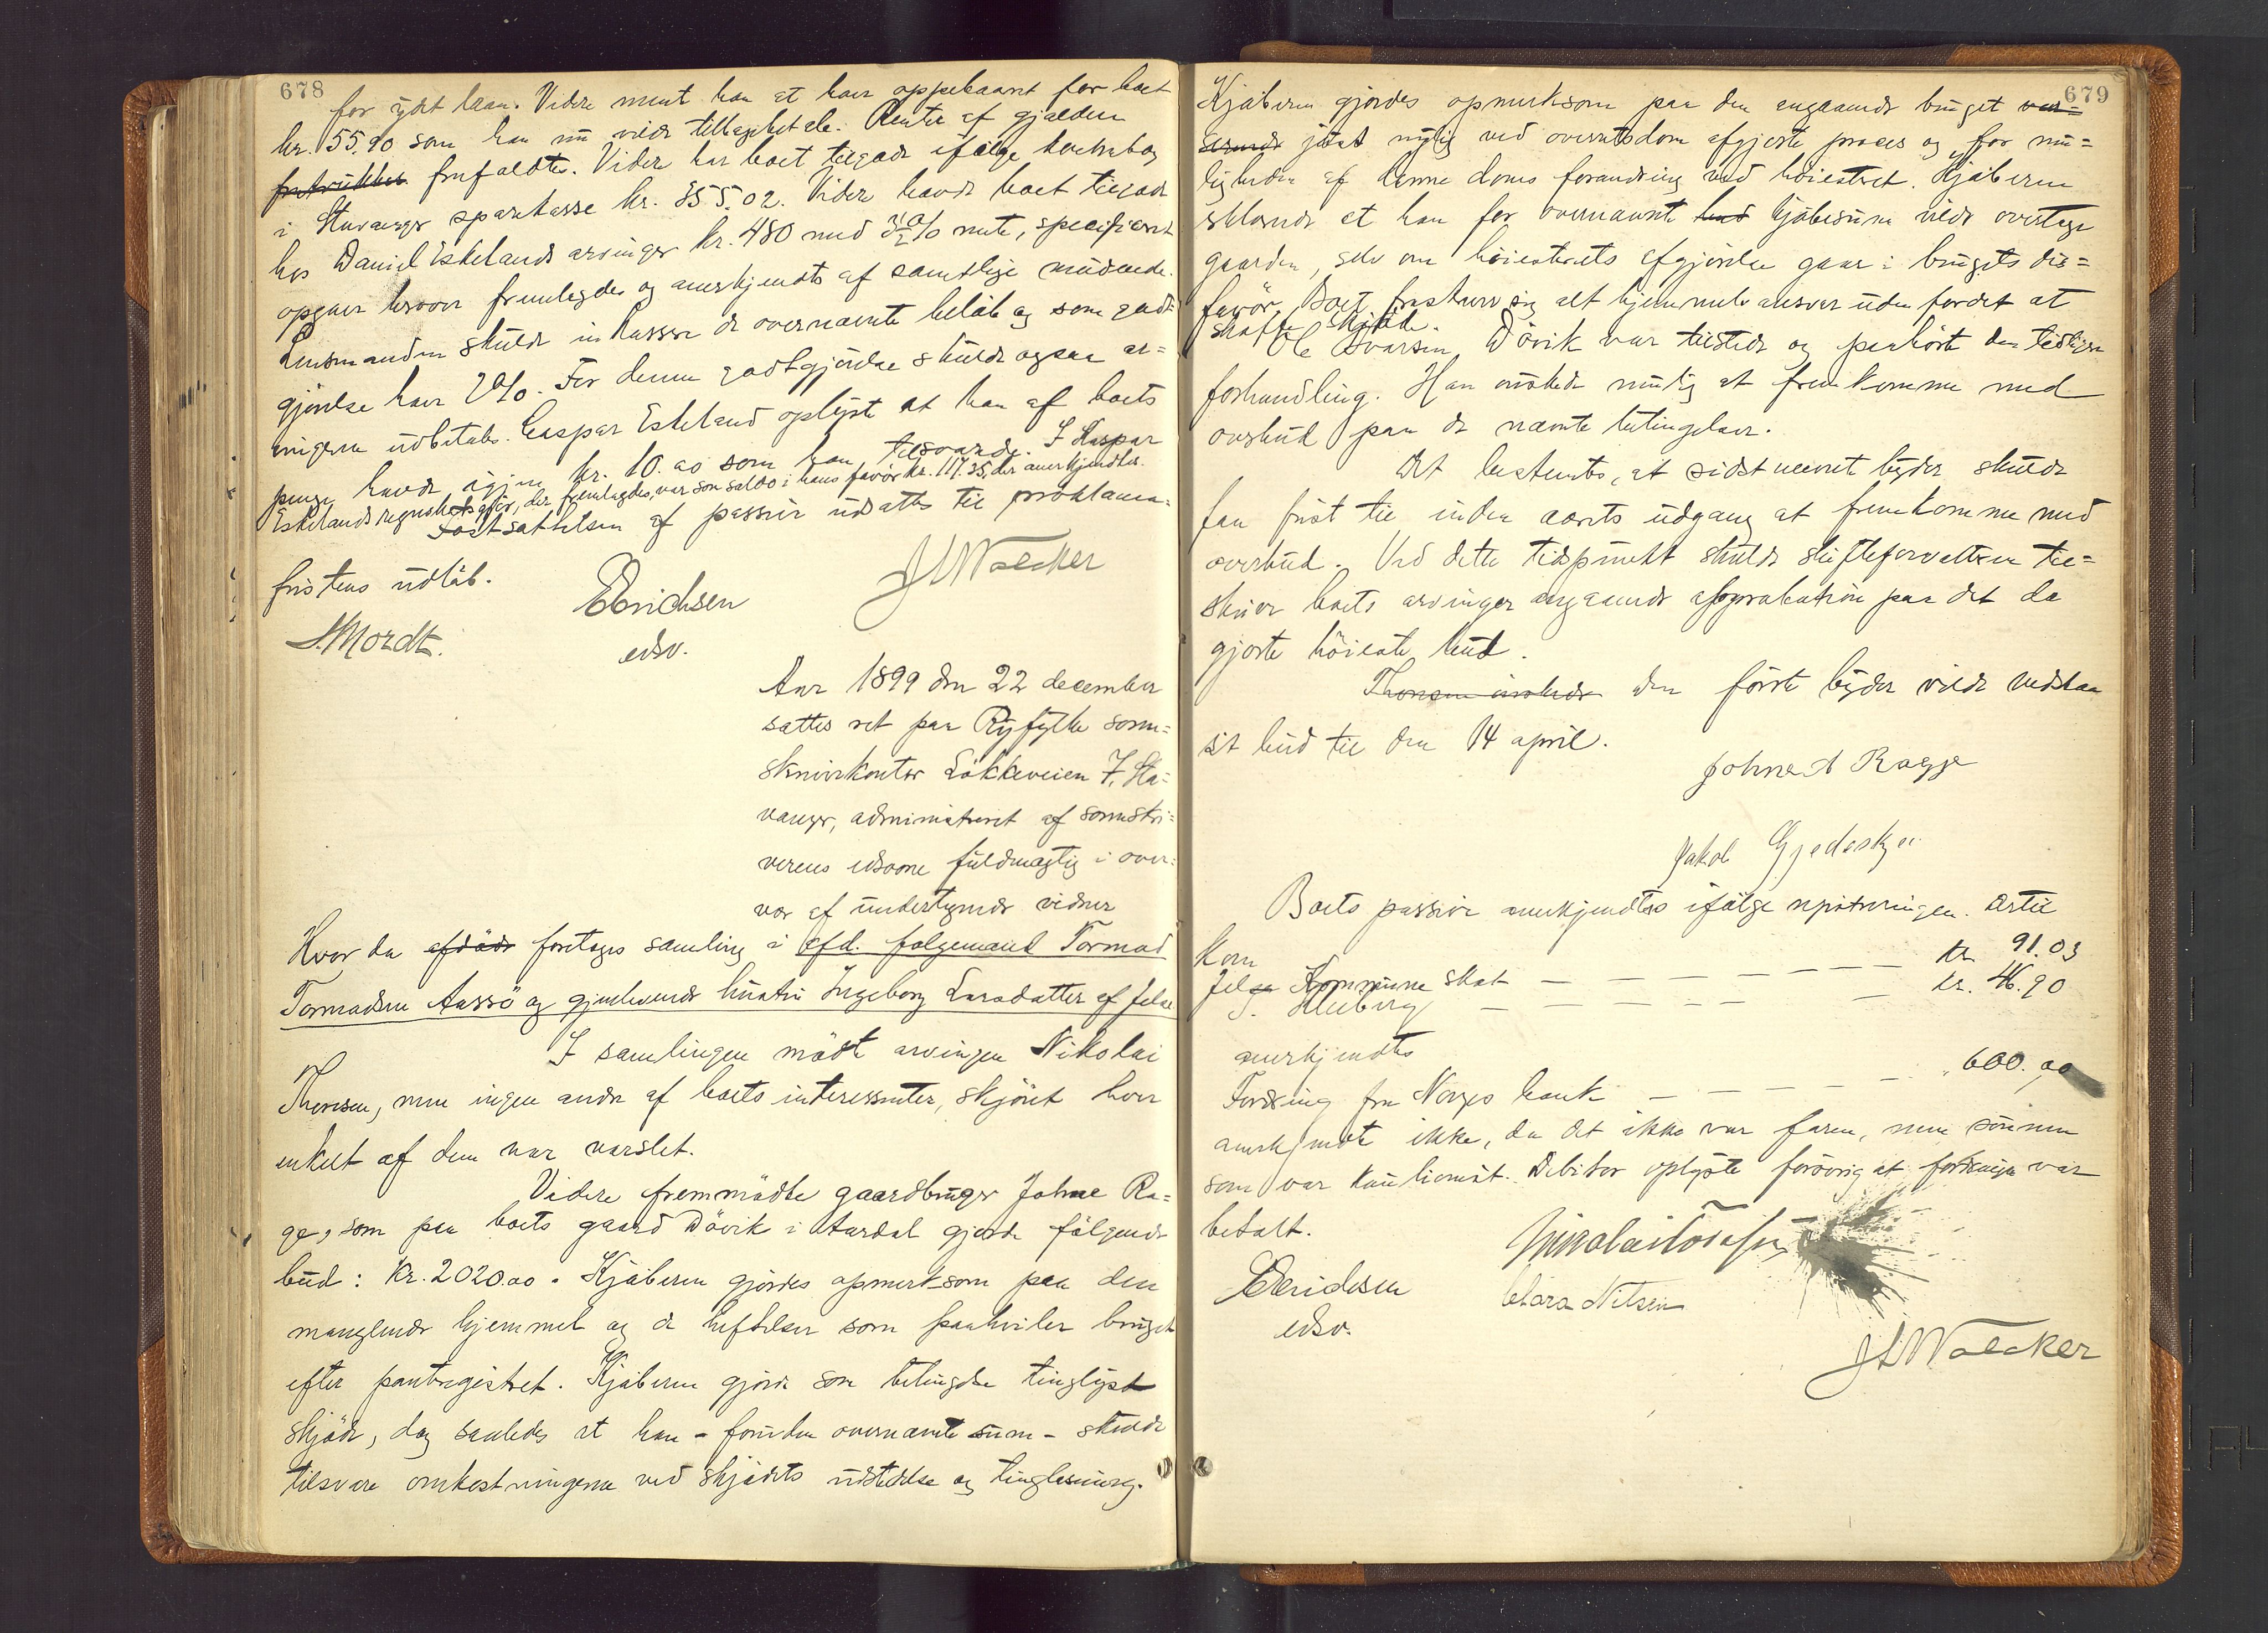 678
for ydet laan. Videre mente han at have oppebaaret for boet
kr. 55.90 som han nu vilde tilbagebetale. Rente af gjælden
frafaldtes. Videre har boet tilgode ifølge kontrabog
i Stavanger sparekasse kr. 355.02. Videre havde boet tilgode
hos Daniel Eskelands arvinger kr. 480 med 3½% rente, specificeret
opgave herover fremlagdes og anerkjendtes af samtlige mødende.
Lensmanden skulde inkassere de overnævnte beløb og som godt=
gjørelse have 2%. For denne godtgjørelse skulde ogsaa ar=
vingerne udbetales. Caspar Eskeland oplyste at han af boets
penge havde igjen kr. 10.00 som han tilsvarede. I Kaspar
Eskelands regnskabsopgjør, der fremlagdes, var som saldo i hans favør kr. 117.35, der anerkjendtes.
Fastsættelsen af passiva udsattes til proklama=
fristens udløb.
JLWalcker
EErichsen
edsv.
S. Mordt.
Aar 1899 den 22 december
sattes ret paa Ryfylke soren=
skriverkontor Løkkeveien 7, Sta=
vanger, administreret af sorenskri=
verens edsvorne fuldmægtig i over=
vær af undertegnede vidner
Hvor da afdøde foretoges samling i afd. følgemand Tormod
Tormodsen Aasø og gjenlevende hustru Ingeborg Larsdatter af Jelse
I samlingen mødte arvingen Nikolai
Thorsen, men ingen andre af boets interessenter, skjønt hver
enkelt af dem var varslet.
Videre fremmødte gaardbruger Johne Ra=
ge, som paa boets gaard Døvik i Aardal gjorde følgende
bud: Kr. 2020.00. Kjøberen gjordes opmerksom paa den
manglende hjemmel og de heftelser som paahviler bruget
efter pantregistret. Kjøberen gjorde som betingelse tinglyst
skjøde, dog saaledes at han - foruden overnævnte sum - skulde
tilsvare omkostningerne ved skjødets udstedelse og tinglæsning.
679
Kjøberen gjordes opmerksom paa den angaaende bruget ver=
serende jetat nylig ved overretsdom afgjorte proces og for mu=
ligheden af denne doms forandring ved høiesteret. Kjøberen
erklærede at han for overnævnte bud kjøbesum vilde overtage
gaarden selv om høiesterets afgjørelse gaar i brugets dis=
favør. Boet fraskrev sig alt hjemmelsansvar uden fordet at
skaffe skjøde.
Ole Ivarsen Døvik var tilstede og paahørte den tidligere
forhandling. Han ønskede mulig at fremkomme med
overbud paa de nævnte betingelser.
Det bestemtes, at sidstnævnte byder skulde
faa frist til inden aarets udgang at fremkomme med
overbud. Ved dette tidspunkt skulde skifteforvalteren til=
skrive boets arvinger angaaende approbation paa det da
gjorte høieste bud.
Thorsen ønskede den første byder vilde vedstaa
sit bud til den 14 april.
Johne A Ragje
Jakob Gjedeskje
Boets passiva anerkjendtes ifølge registreringen. Ertil
kom
Jelse Kommune skat — — — — — — — kr. 91.03
S. Kleiberg — — — — — kr. 46.90
anerkjendtes
Fordring fra Norges bank — — — — 600.00
anerkjendtes ikke, da det ikke var faren, men sønnen
som var kautionist. Debitor oplyste forøvrig at fordringen var
betalt.
Ninolai Toresen
EErichsen
edsv.
Clara Nilsen
JLWalcker